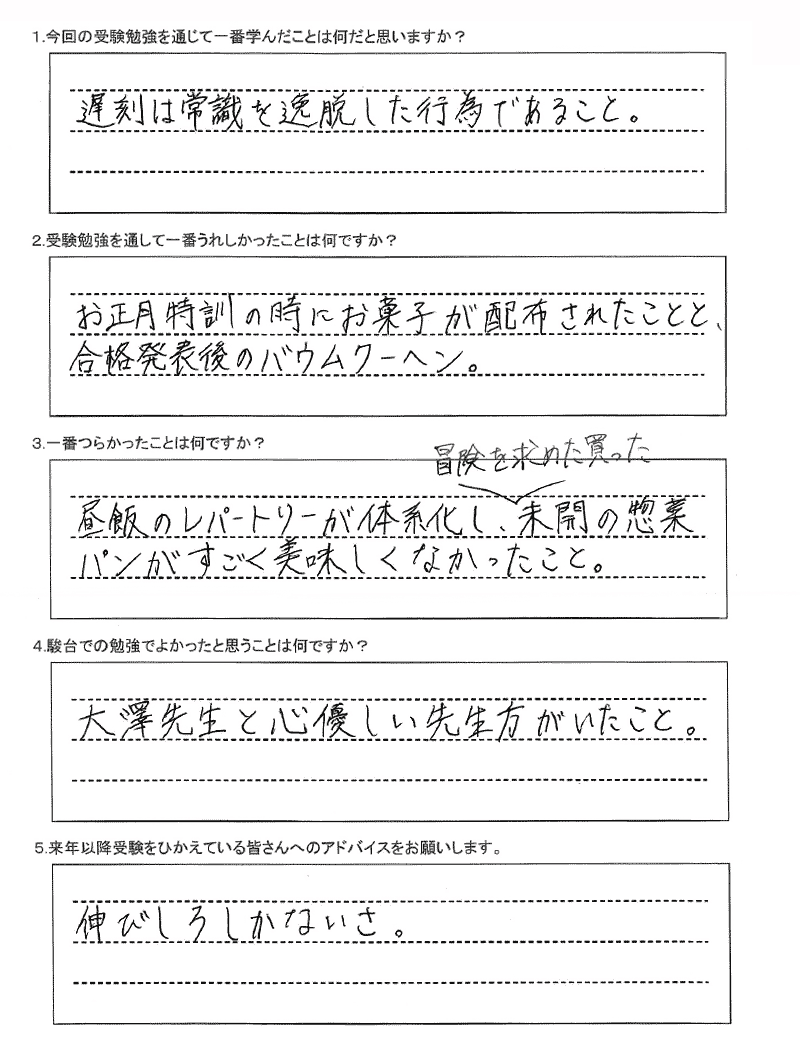 1.今回の受験勉強を通じて一番学んだことは何だと思いますか？
遅刻は常識を逸脱した行為であること。
2.受験勉強を通して一番うれしかったことは何ですか？
お正月特訓の時にお菓子が配布されたことと、
合格発表後のバウムクーヘン。
3.一番つらかったことは何ですか？
冒険を求めた買った
昼飯のレパートリーが体系化し、未開の惣菜
パンがすごく美味しくなかったこと。
4.駿台での勉強でよかったと思うことは何ですか？
大澤先生と心優しい先生方がいたこと。
5.来年以降受験をひかえている皆さんへのアドバイスをお願いします。
伸びしろしかないさ。